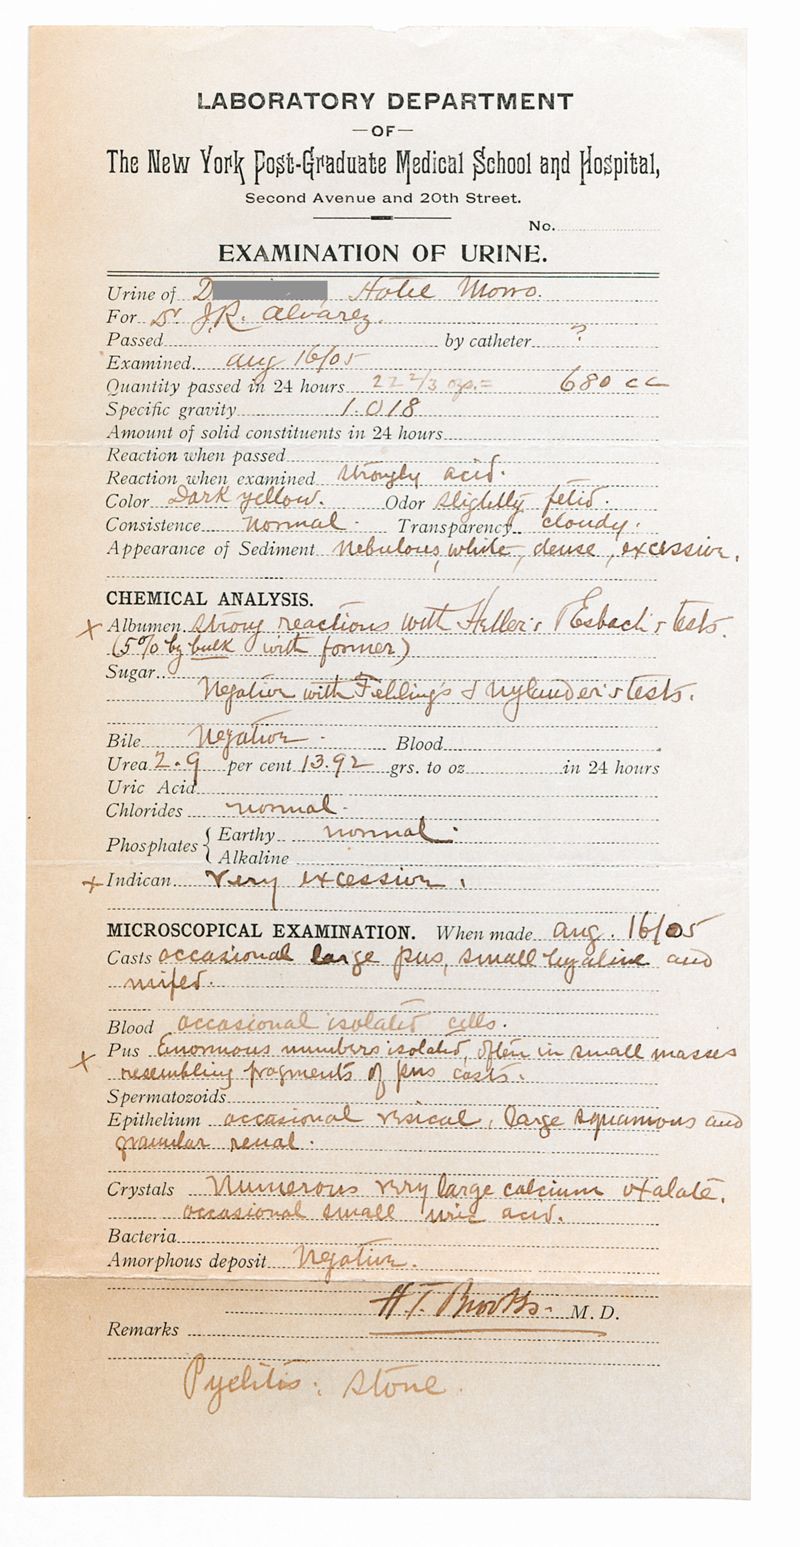 LABORATORY DEPARTMENT
—OF—
The New York Post-Graduate Medical School and Hospital,
Second Avenue and 20th Street.
No.
EXAMINATION OF URINE.
Urine of D Hotel Morro.
For Dr J.R. Alvarez.
Passed by catheter ?
Examined Aug 16/05
Quantity passed in 24 hours 22 2/3 ozs. = 680 cc
Specific gravity 1.018
Amount of solid constituents in 24 hours
Reaction when passed
Reaction when examined strongly acid.
Color Dark yellow. Odor slightly fetid.
Consistence normal. Transparency cloudy.
Appearance of Sediment nebulous, white, dense, excessive.
CHEMICAL ANALYSIS.
x Albumen strong reactions with Heller's & Esbach's tests.
(5% by bulk with former)
Sugar
Negative with Fehling's & Nylander's tests.
Bile Negative. Blood
Urea 2.9 per cent 13.92 grs. to oz in 24 hours
Uric Acid
Chlorides normal.
Phosphates { Earthy normal.
Alkaline
x Indican very excessive.
MICROSCOPICAL EXAMINATION. When made Aug. 16/05
Casts occasional large pus, small hyaline and
mixed.
Blood occasional isolated cells.
x Pus Enormous numbers isolated, often in small masses
resembling fragments of pus casts.
Spermatozoids
Epithelium occasional vesical, large squamous and
granular renal.
Crystals Numerous very large calcium oxalate,
occasional small uric acid.
Bacteria
Amorphous deposit Negative.
H.T. Brooks. M.D.
Remarks
Pyelitis: stone.